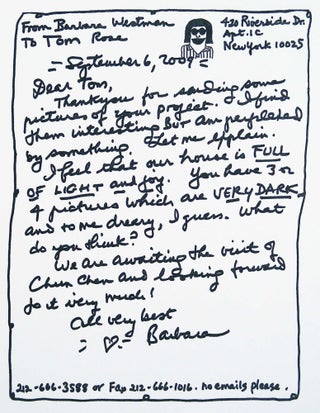 From Barbara Westman
To Tom Rose
420 Riverside Dr.
Apt. 1C
New York 10025
= September 6, 2009 =
Dear Tom,
Thank you for sending some
pictures of your project. I find
them interesting BUT am perplexed
by something. Let me explain.
I feel that our house is FULL
OF LIGHT and joy. You have 3 or
4 pictures which are VERY DARK
and to me dreary, I guess. What
do you think?
We are awaiting the visit of
Chun Chen and looking forward
to it very much!
All very best
Barbara
212-666-3588 or Fax 212-666-1016. no emails please.